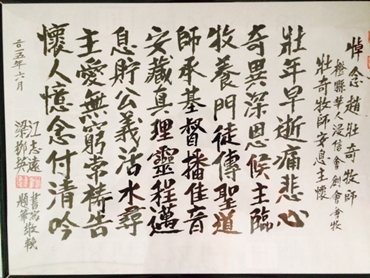 悼念趙壯奇牧師
橙縣華人浸信會創會
壯奇牧師安息主懷
壯年早逝痛悲心
奇異深恩候主臨
牧養門徒傳聖道
師承基督播佳音
安藏真理靈程邁
息貯公義活水尋
主愛無窮常禱告
懷人憶念付清吟
江志遠
梁鄧英
敬輓
二〇一五年六月